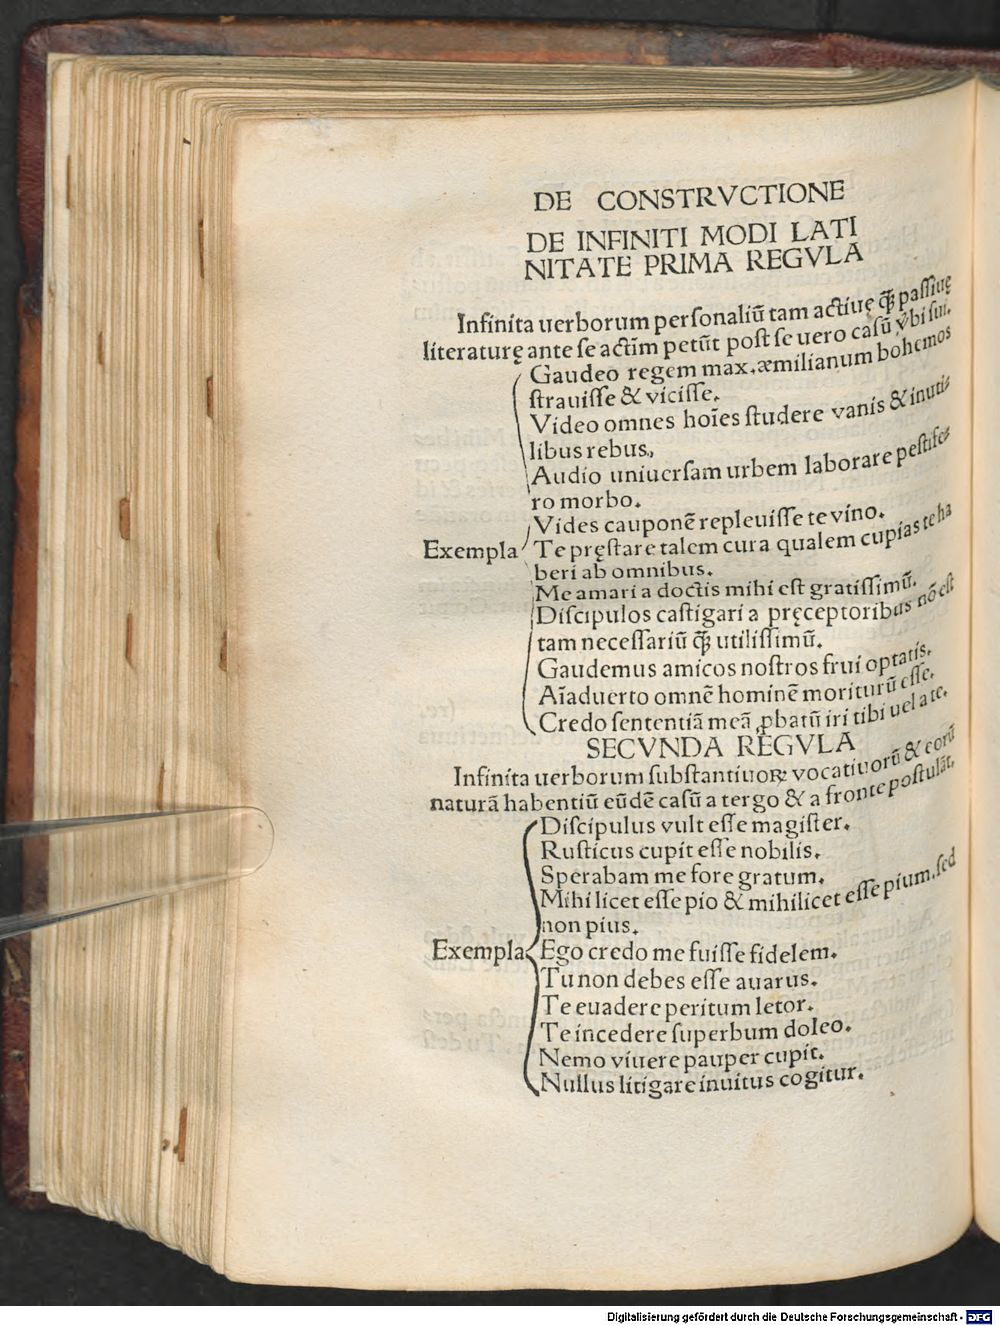 DE CONSTRVCTIONE
DE INFINITI MODI LATI
NITATE PRIMA REGVLA
Infinita uerborum personaliũ tam actiuę q̃ꝫ passiuę
literaturę ante se actĩm petũt post se uero casũ ỹbi sui.
Gaudeo regem max. æmilianum bohemos
strauisse & vicisse.
Video omnes hoĩes studere vanis & inuti⸗
libus rebus.,
Audio uniuersam urbem laborare pestife⸗
ro morbo.
Vides cauponẽ repleuisse te vino.
Exempla Te pręstare talem cura qualem cupias te ha
beri ab omnibus.
Me amari a doctis mihi est gratissimũ.
Discipulos castigari a pręceptoribus nõ est
tam necessariũ q̃ꝫ utilissimũ.
Gaudemus amicos nostros frui optatis.
Aĩaduerto omnẽ hominẽ moriturũ esse.
Credo sententiã meã ꝓbatũ iri tibi uel a te.
SECVNDA REGVLA
Infinita uerborum substantiuoꝝ vocatiuorũ & eorũ
naturã habentiũ eũdẽ casũ a tergo & a fronte postulãt.
Discipulus vult esse magister.
Rusticus cupit esse nobilis.
Sperabam me fore gratum.
Mihi licet esse pio & mihilicet esse pium. sed
non pius.
Exempla Ego credo me fuisse fidelem.
Tu non debes esse auarus.
Te euadere peritum letor.
Te incedere superbum doleo.
Nemo viuere pauper cupit.
Nullus litigare inuitus cogitur.
Digitalisierung gefördert durch die Deutsche Forschungsgemeinschaft - DFG